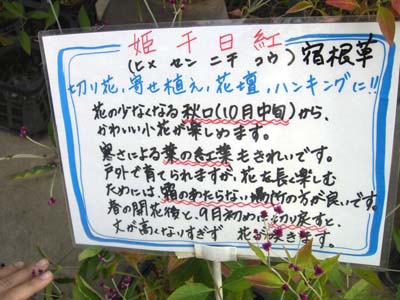 姫千日紅
(ヒメ セン ニチ コウ) 宿根草
切り花,寄せ植え,花壇,ハンキングに!!
花の少なくなる秋口(10月中旬)から、
かわいい小花が楽しめます。
寒さによる葉の紅葉もきれいです。
戸外で育てられますが、花を長く楽しむ
ためには、霜のあたらない場所の方が良いです。
春の開花後と、9月初めに切り戻すと、
丈が高くなりすぎず 花が咲きます。